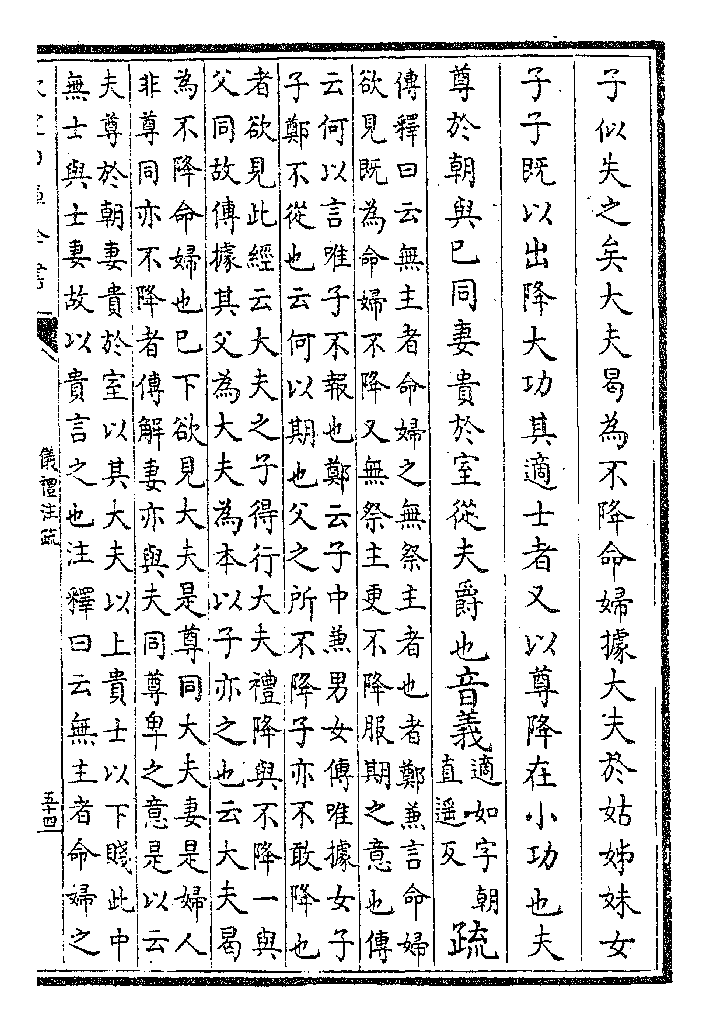 子似失之矣大夫曷為不降命婦據大夫於姑姊妹女
子子既以出降大功其適士者又以尊降在小功也夫
尊於朝與巳同妻貴於室從夫爵也音義適如字朝直遥反疏
傳釋曰云無主者命婦之無祭主者也者鄭兼言命婦
欲見既為命婦不降又無祭主更不降服期之意也傳
云何以言唯子不報也鄭云子中兼男女傳唯據女子
子鄭不從也云何以期也父之所不降子亦不敢降也
者欲見此經云大夫之子得行大夫禮降與不降一與
父同故傳據其父為大夫為本以子亦之也云大夫曷
為不降命婦也巳下欲見大夫是尊同大夫妻是婦人
非尊同亦不降者傳解妻亦與夫同尊卑之意是以云
夫尊於朝妻貴於室以其大夫以上貴士以下賤此中
無士與士妻故以貴言之也注釋曰云無主者命婦之
儀禮注疏
五十四